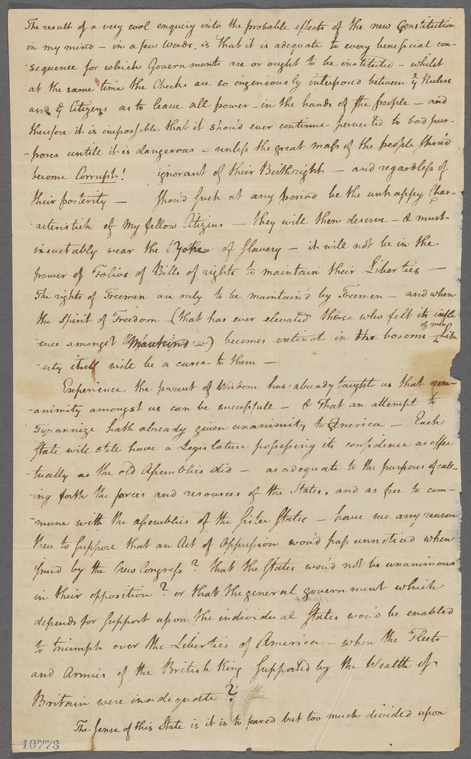 The result of a very cool enquiry into the probable effects of the new Constitution
in my mind – in a few words, is that it is adequate to every beneficial con-
-sequence for which Governments are or ought to be instituted – whilst
at the same time the Checks are so ingeniously interposed between ye Rulers
and ye Citizens as to leave all power – in the hands of the people – and
therefore it is impossible that it should ever continue perverted to bad pur-
-poses untill it is dangerous – unless the great mass of the people should
become Corrupt! ignorant of their Birthright – and regardless of
their posterity – Should such at any period be the unhappy Char-
-acteristick of my fellow Citizens – they will then deserve – & must
inevitably wear the Yoke of Slavery – it will not be in the
power of Folios of Bills of rights to maintain their Liberties –
The rights of Freemen are only to be maintain'd by Freemen – and when
the Spirit of Freedom (that has ever elevated those who felt its influ-
ence amongst Mankind –) becomes extinct in the bosoms of men Lib-
-erty itself will be a curse to them –
Experience the parent of Wisdom has already taught us that unan-
-animity amongst us can be successfull – & that an attempt to
Tyrannize hath already given unanimity to America – Each
State will still have a Legislature possessing its confidence as effec-
-tually as the old Assemblies did – as adequate to the purposes of call-
-ing forth the forces and resources of the States, and as free to com-
-mune with the assemblies of the Sister States – have we any reason
then to suppose that an Act of Oppression wou'd pass unnoticed when
issued by the New Congress? that the States wou'd not be unanimous
in their opposition? or that the general government which
depends for Support upon the individual States wou'd be enabled
to triumph over the Liberties of America – when the Fleets
and Armies of the British King Supported by the Wealth of
Britain were inadequate?
The Sense of this State is it is to feared but too much divided upon
10773